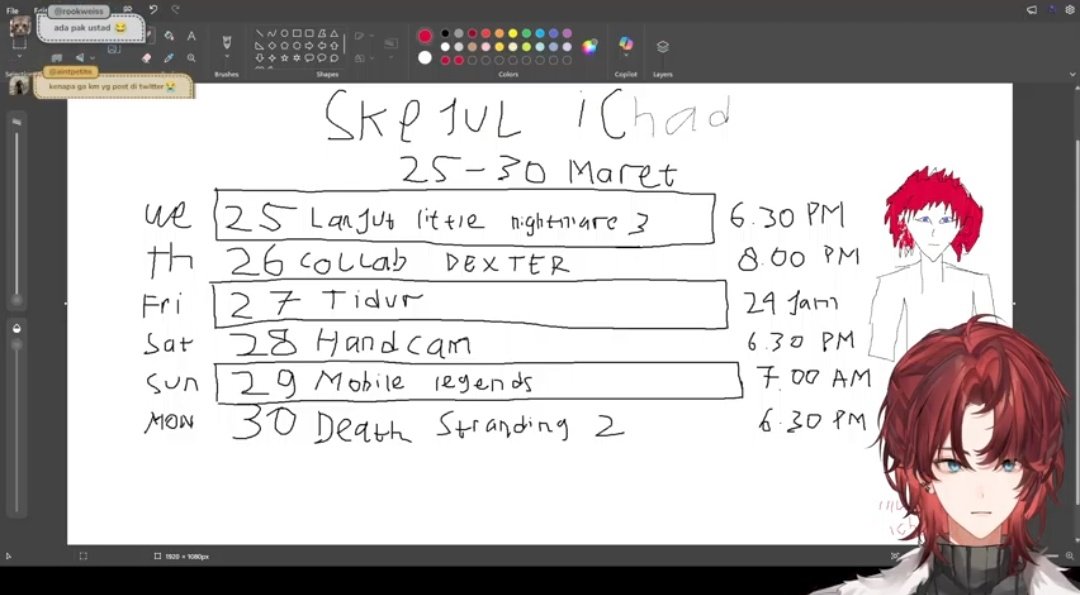 File
@rookweiss
ada pak ustad 😂
@aintpetite
kenapa ga km yg post di twitter 😭
Brushes
Shapes
Colors
Copilot
Layers
SKEJUL iChad
25-30 Maret
We 25 Lanjut little nightmare 3 6.30 PM
Th 26 COLLAB DEXTER 8.00 PM
Fri 27 Tidur 24 Jam
Sat 28 Handcam 6.30 PM
Sun 29 Mobile legends 7.00 AM
MON 30 Death Stranding 2 6.30 PM
1920 × 1080px